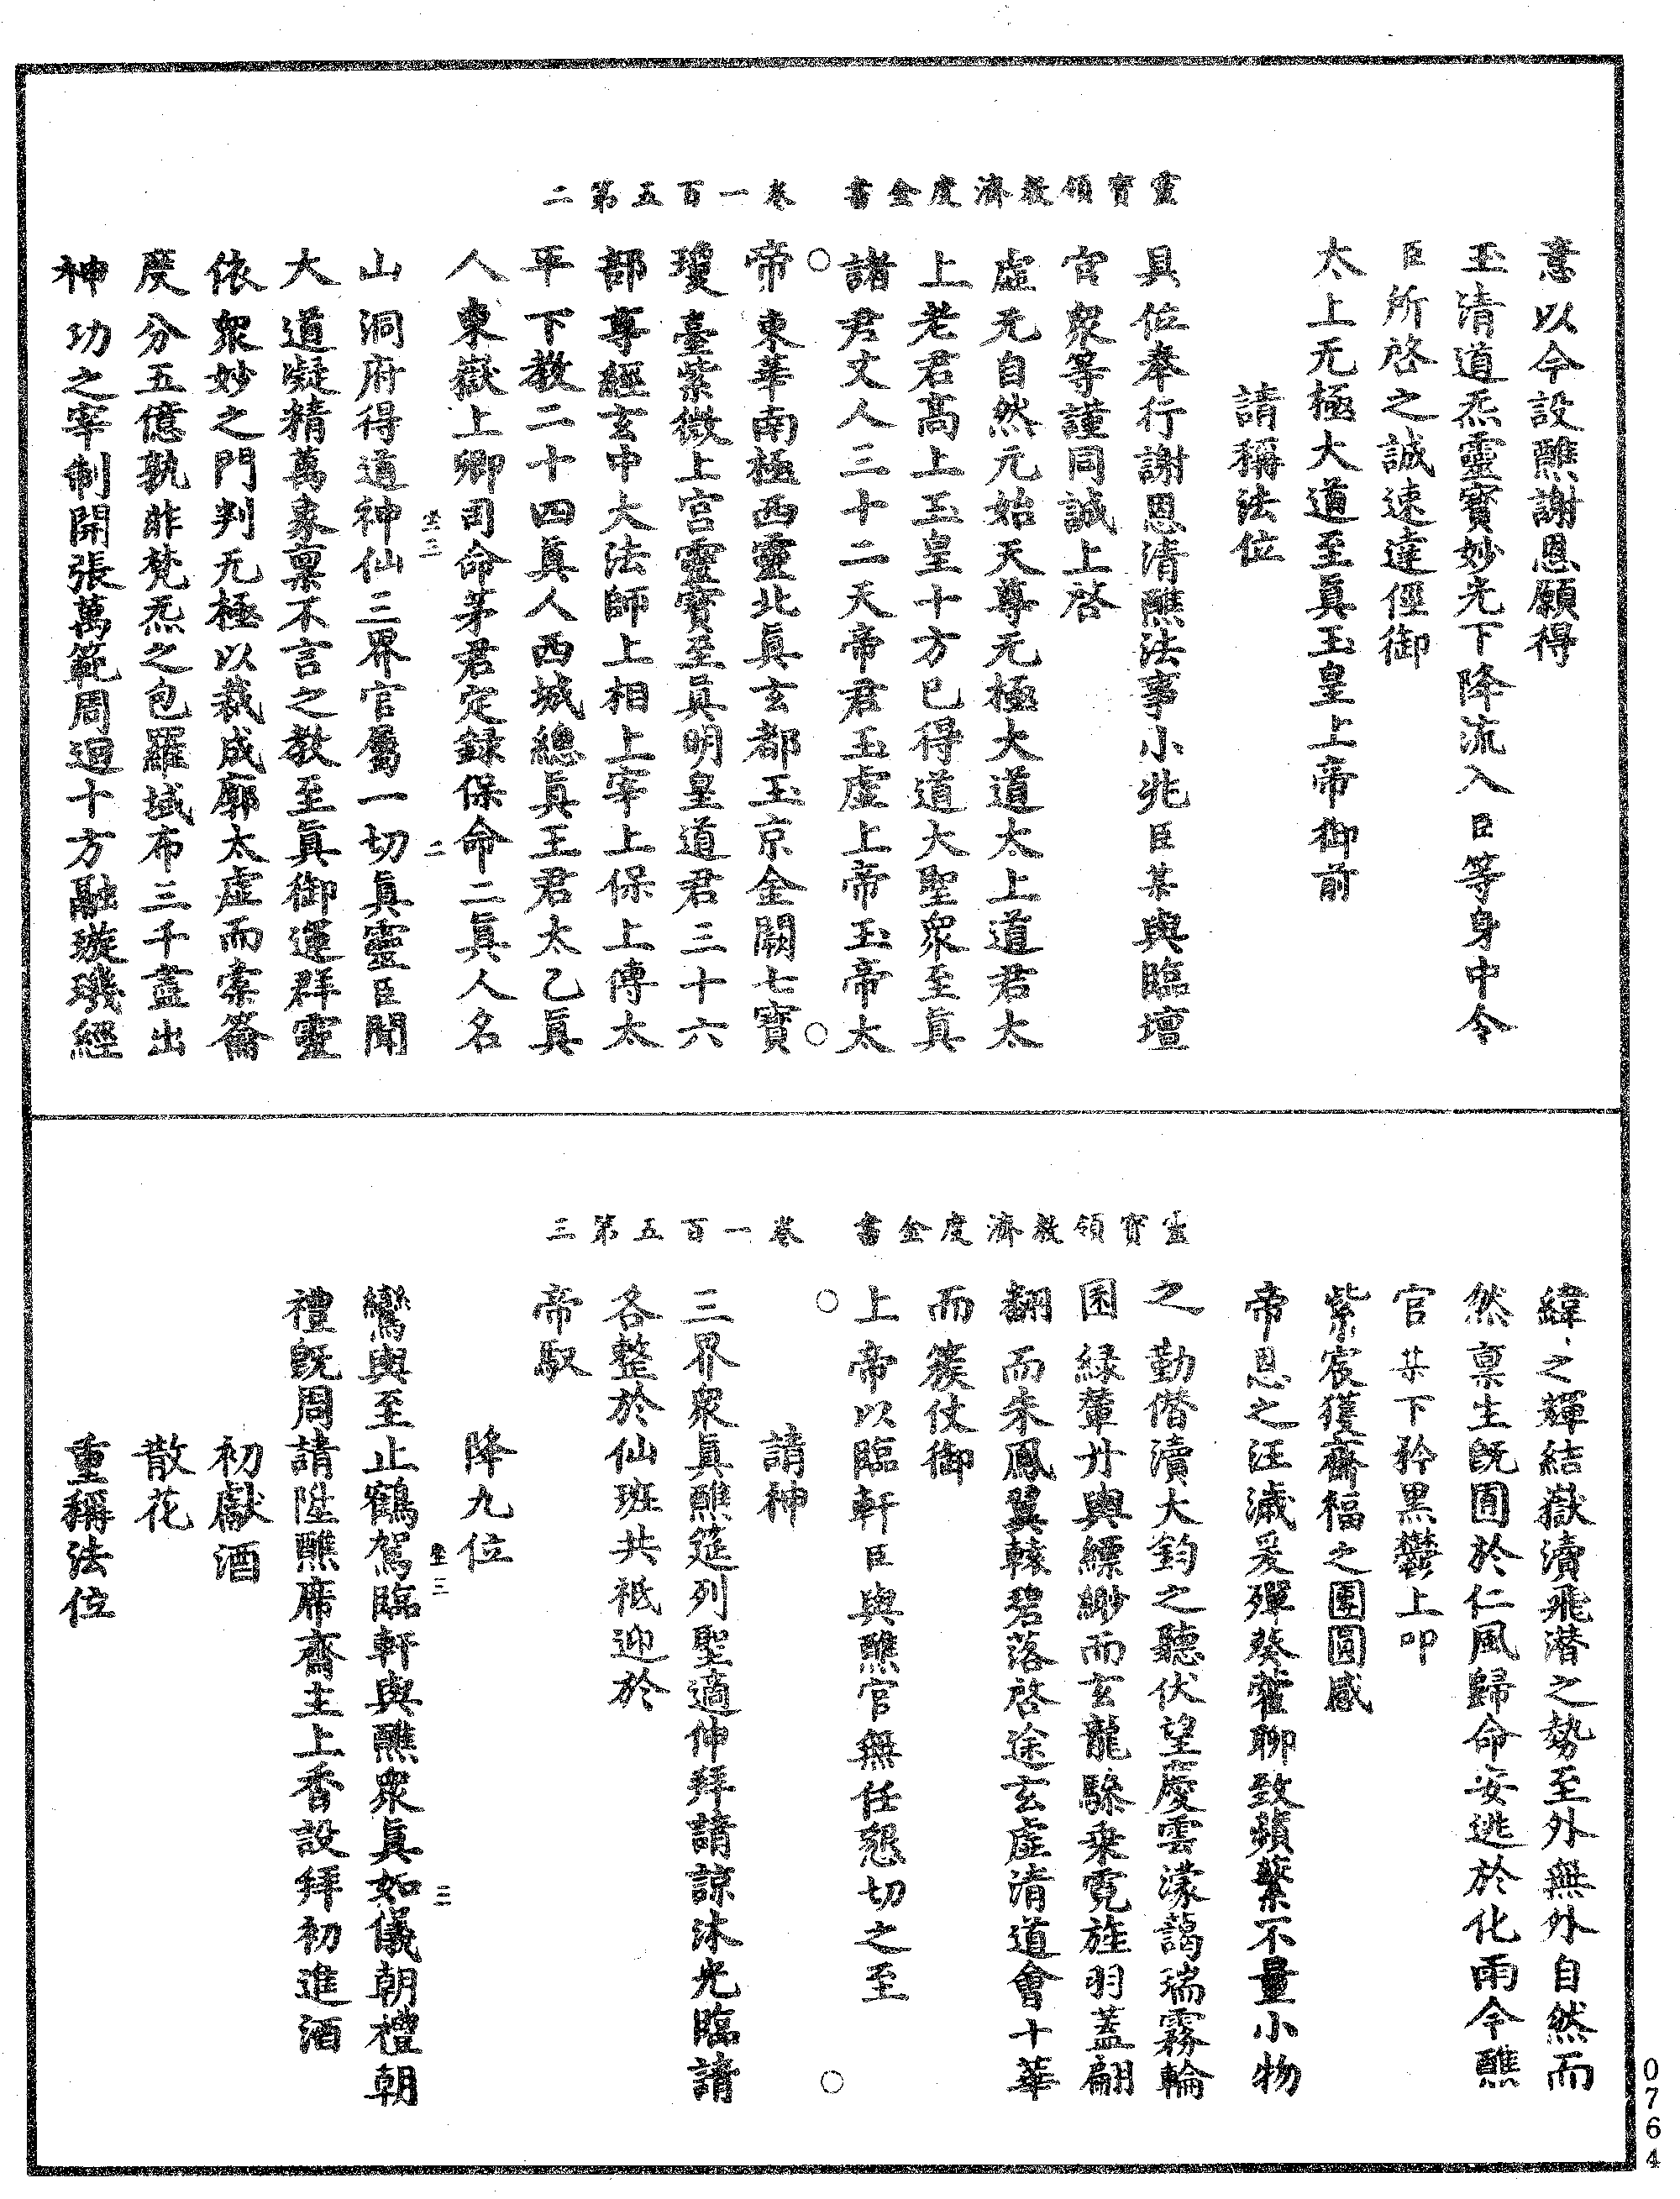 靈寶領教濟度金書　卷一百五第二
意以今設醮謝恩願得
玉清道炁靈寶妙光下降流入臣等身中令
臣所啓之誠速達徑御
太上无極大道至眞玉皇上帝御前
請稱法位
具位奉行謝恩清醮法事小兆臣某與臨壇
官衆等謹同誠上啓
虛无自然元始天尊元極大道太上道君太
上老君高上玉皇十方已得道大聖衆至眞
諸君丈人三十二天帝君玉虛上帝玉帝太
帝東華南極西靈北眞玄都玉京金闕七寶
瓊臺紫微上宮靈寶至眞明皇道君三十六
部尊經玄中大法師上相上宰上保上傅太
平下教二十四眞人西城總眞王君太乙眞
人東嶽上卿司命茅君定錄保命二眞人名
山洞府得道神仙三界官屬一切眞靈臣聞
大道凝精萬彖稟不言之教至眞御運群靈
依衆妙之門判元極以裁成廓太虛而橐籥
庋分五億孰非梵炁之包羅域布三千盡出
神功之宰制開張萬範周迴十方融璇璣經
靈寶領教濟度金書　卷一百五第三
緯之輝結嶽瀆飛潛之勢至外無外自然而
然稟生旣囿於仁風歸命安逃於化雨今醮
官某下矜黑鬱上叩
紫宸獲齋福之團圓感
帝恩之汪濊爰殫葵藿聊致蘋蘩不量小物
之勤僭瀆大鈞之聽伏望慶雲濛藹瑞霧輪
囷綠輦丹輿縹緲而玄龍驂乘霓旌羽蓋翩
翻而朱鳳翼轅碧落啓途玄虛清道會十華
而簇仗御
上帝以臨軒臣與醮官無任懇切之至
請神
三界衆眞醮筵列聖適伸拜請諒沐光臨請
各整於仙班共祗迎於
帝馭
降九位
鸞輿至止鶴駕臨軒與醮衆眞如儀朝禮朝
禮旣周請陞醮席齋主上香設拜初進酒
初獻酒
散花
重稱法位
0764